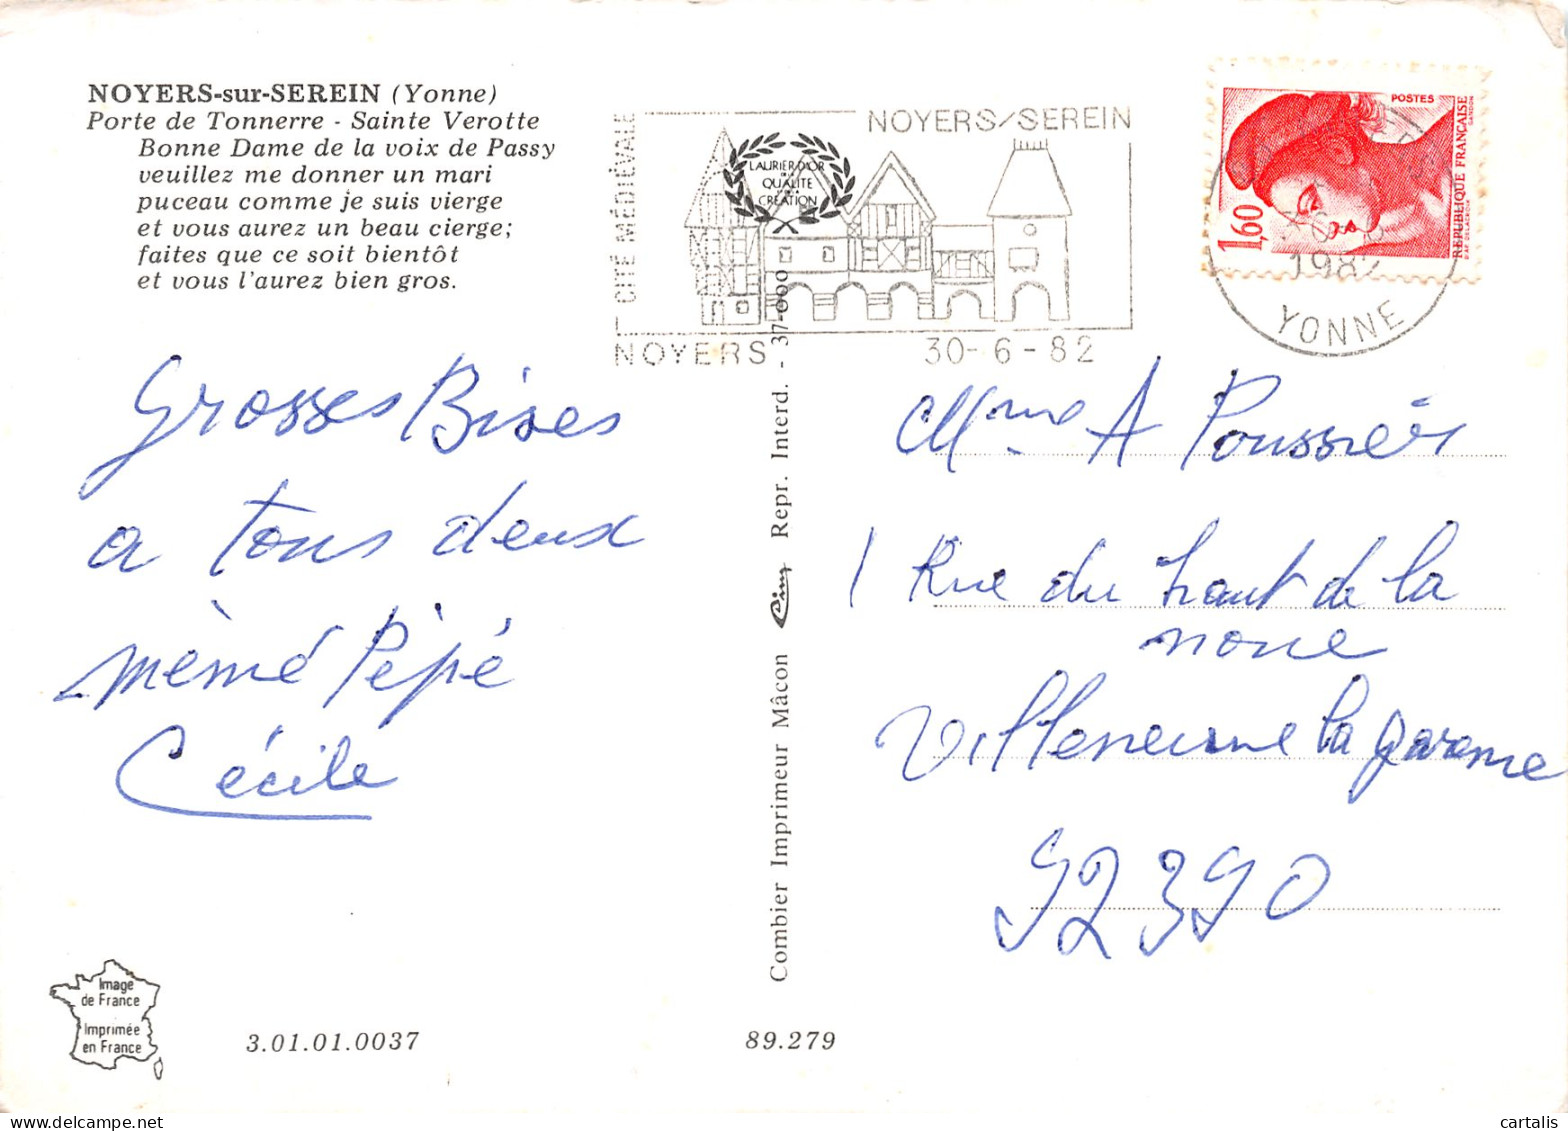 NOYERS-sur-SEREIN (Yonne)
Porte de Tonnerre - Sainte Verotte
Bonne Dame de la voix de Passy
veuillez me donner un mari
puceau comme je suis vierge
et vous aurez un beau cierge;
faites que ce soit bientôt
et vous l'aurez bien gros.
CITÉ MÉDIÉVALE
NOYERS/SEREIN
LAURIER D'OR
DE LA
QUALITÉ
CRÉATION
NOYERS
30-6-82
POSTES
1,60
REPUBLIQUE FRANÇAISE
1982
YONNE
Grosses Bises
a tous deux
mèmé Pèpé
Cécile
Mme A
1 Rue du haut de la
noue
Villeneuve la garenne
92390
Combier Imprimeur Mâcon Cim Repr. Interd. - 37-000
Image
de France
Imprimée
en France
3.01.01.0037
89.279
cartalis